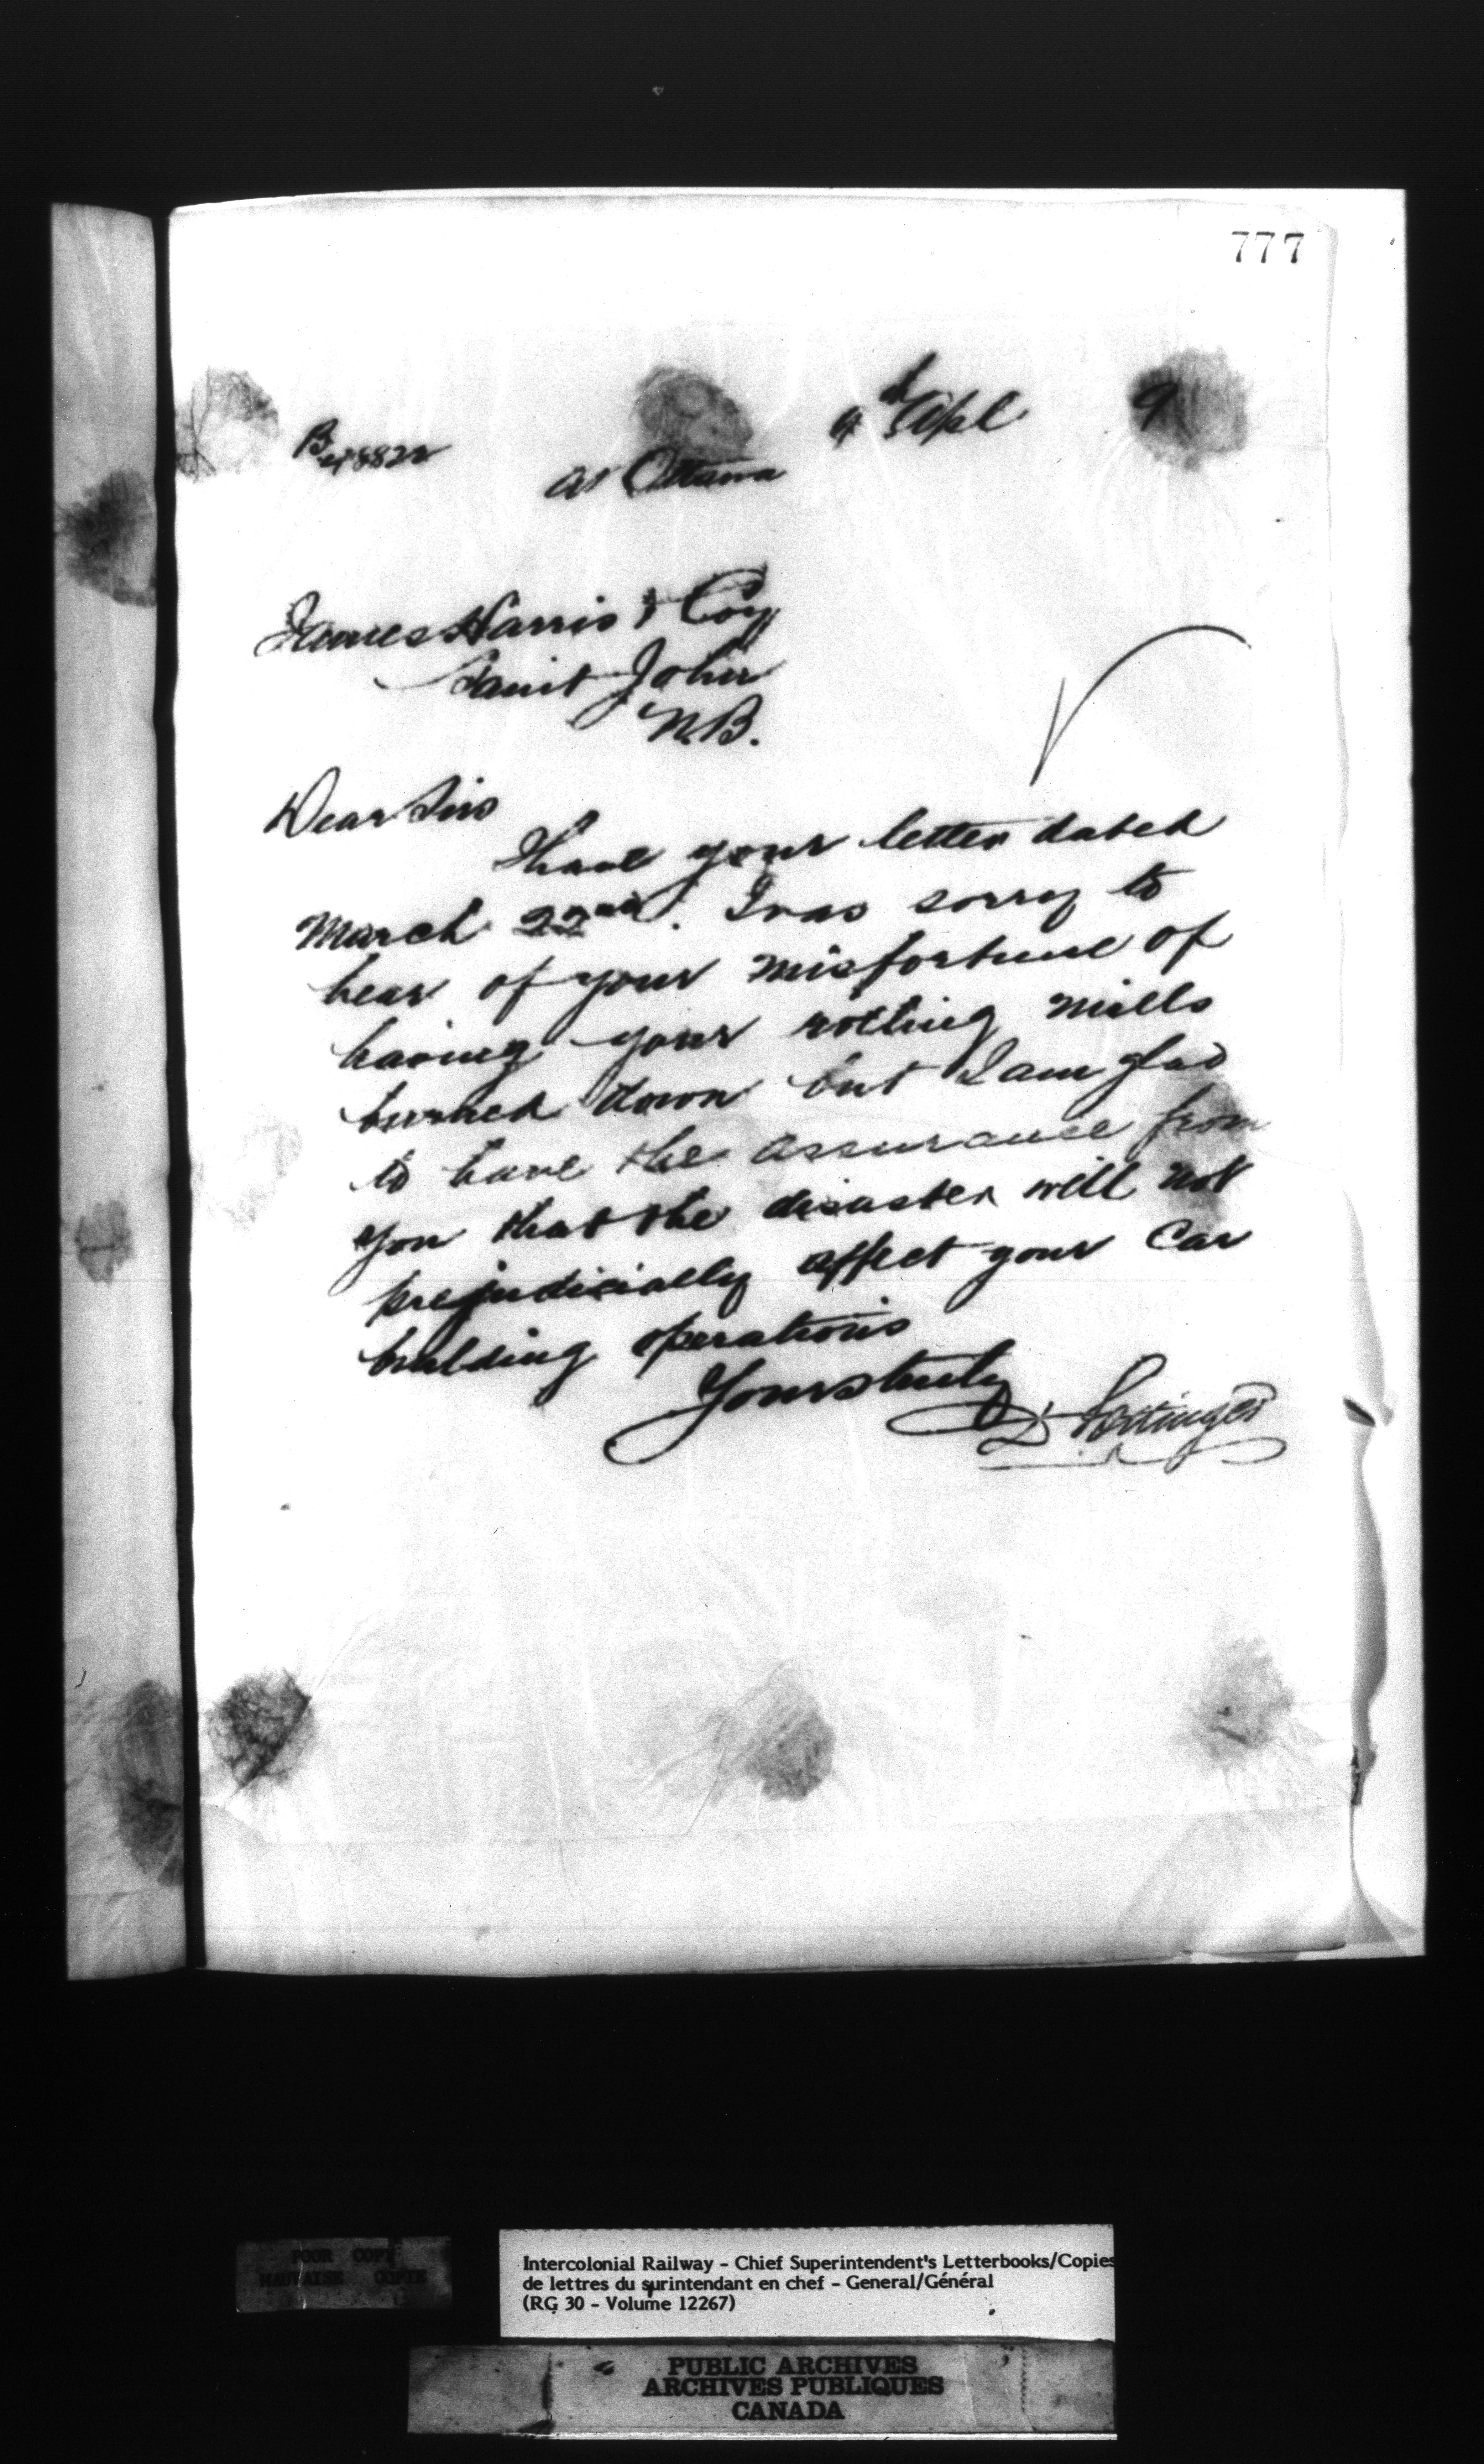 777
4th Apl 9
B 48822
at Ottawa
James Harris & Coy
Saint John
N.B.
Dear Sirs
I have your letter dated
March 22nd. I was sorry to
hear of your misfortune of
having your rolling mills
burned down but I am glad
to have the assurance from
you that the disaster will not
prejudicially affect your Car
building operations
Yours truly
D Pottinger
POOR COPY
MAUVAISE COPIE
Intercolonial Railway - Chief Superintendent's Letterbooks/Copies
de lettres du surintendant en chef - General/Général
(RG 30 - Volume 12267)
PUBLIC ARCHIVES
ARCHIVES PUBLIQUES
CANADA